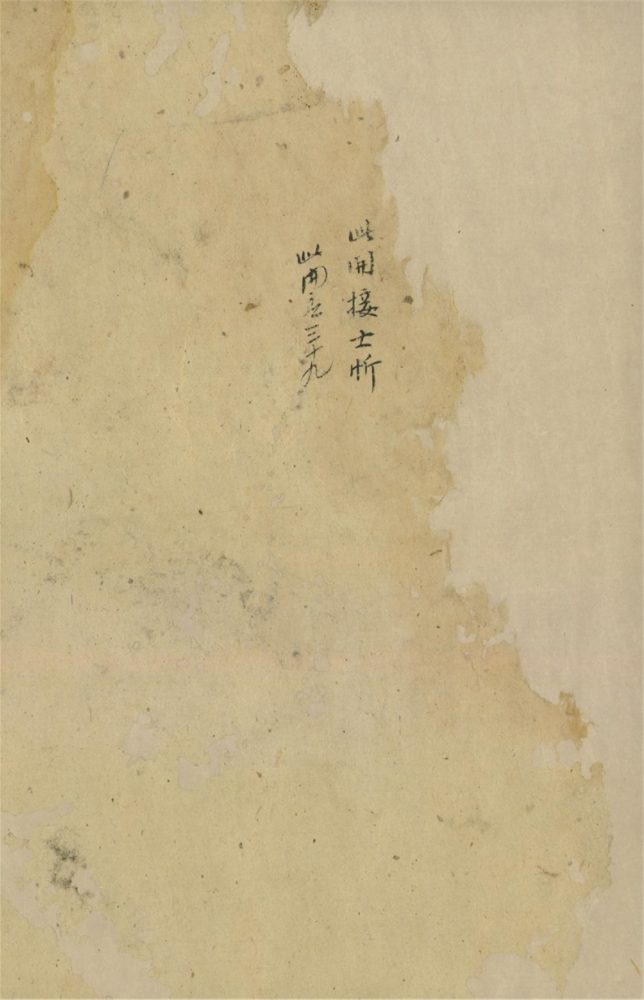 此開接士忻
此開三十九